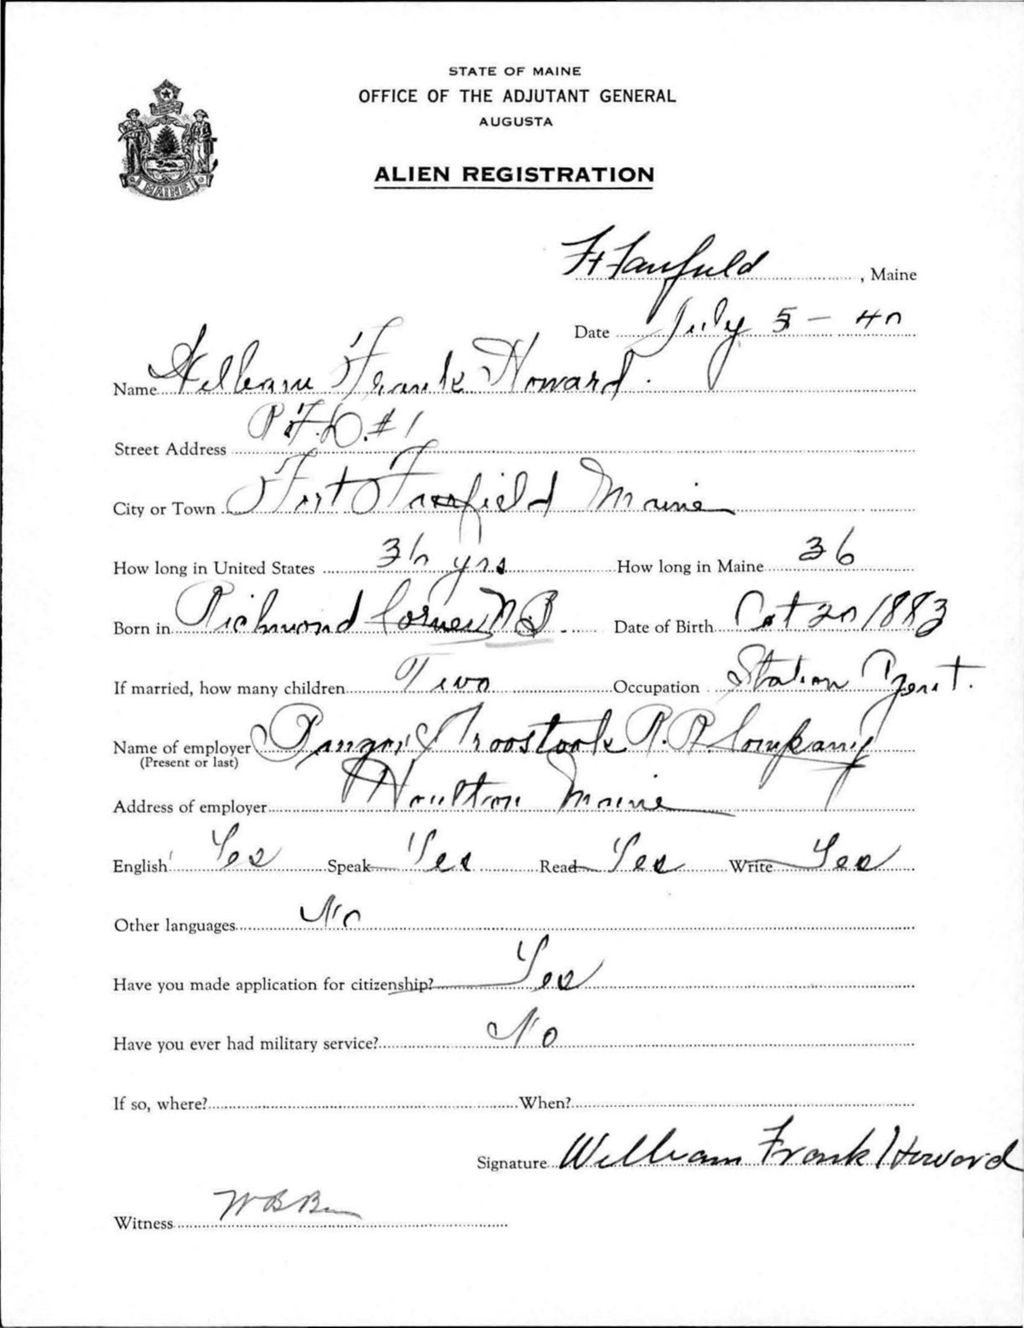 STATE OF MAINE
OFFICE OF THE ADJUTANT GENERAL
AUGUSTA
ALIEN REGISTRATION
MAINE
Ft Fairfield, Maine
Date July 5 - 40
Name William Frank Howard.
Street Address R.F.D. #1
City or Town Fort Fairfield Maine
How long in United States 36 yrs How long in Maine 36
Born in Richmond Corner N B Date of Birth Oct 20 1883
If married, how many children Two Occupation Station Agent.
Name of employer Bangor & Aroostook R.R. Company
(Present or last)
Address of employer Houlton Maine
English Yes Speak Yes Read Yes Write Yes
Other languages No
Have you made application for citizenship? Yes
Have you ever had military service? No
If so, where? When?
Signature William Frank Howard
Witness W B